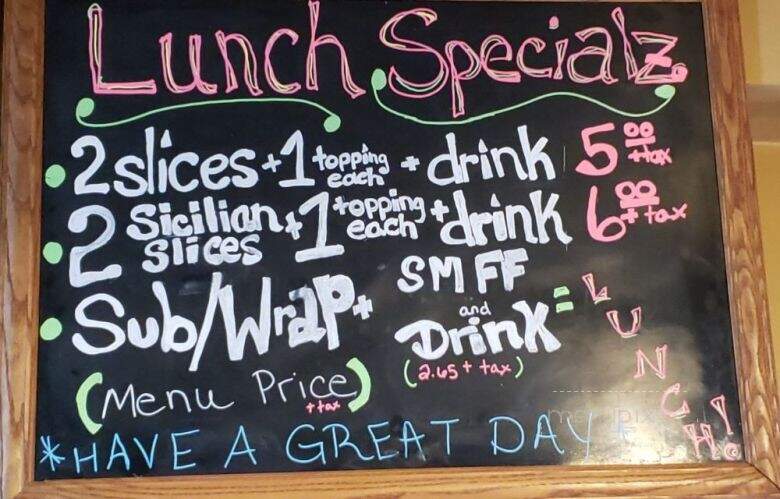 Lunch Specialz
• 2 slices + 1 topping each + drink 5.00 + tax
• 2 Sicilian slices + 1 topping each + drink 6.00 + tax
• Sub/Wrap + SM FF and Drink = LUNCH!
(Menu Price + tax) (2.65 + tax)
*HAVE A GREAT DAY*